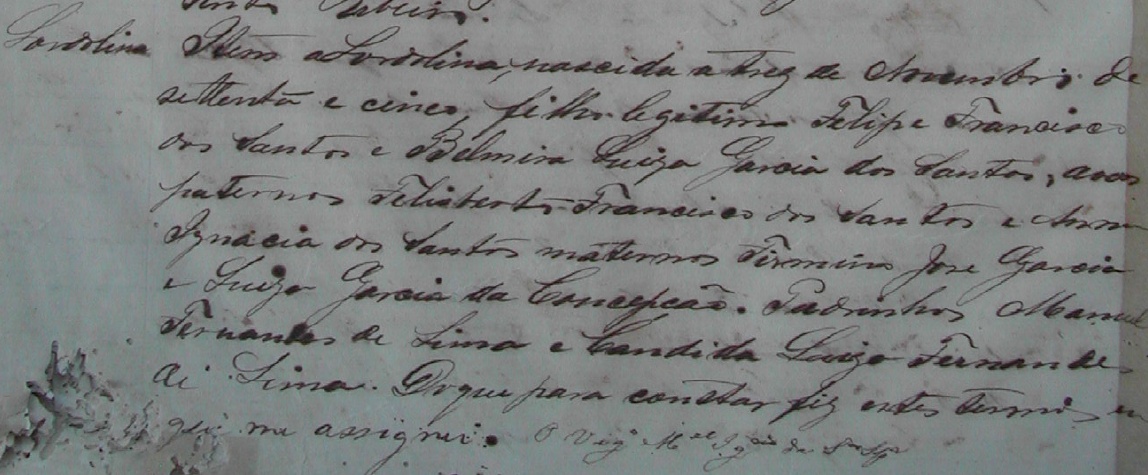 Lordolina
Item a Lordolina, nascida a trez de Novembro, de
settenta e cinco, filha legitima Felipe Francisco
dos Santos e Belmira Luiza Garcia dos Santos, avos
paternos Feliberto Francisco dos Santos e Anna
Ignacia dos Santos maternos Firmino Jose Garcia
e Luiza Garcia da Concepcaõ. Padrinhos Manuel
Fernandes de Lima e Candida Luiza Fernandes
de Lima. Do que para constar fiz este termo, em
que me assignei. O Vigº M.el